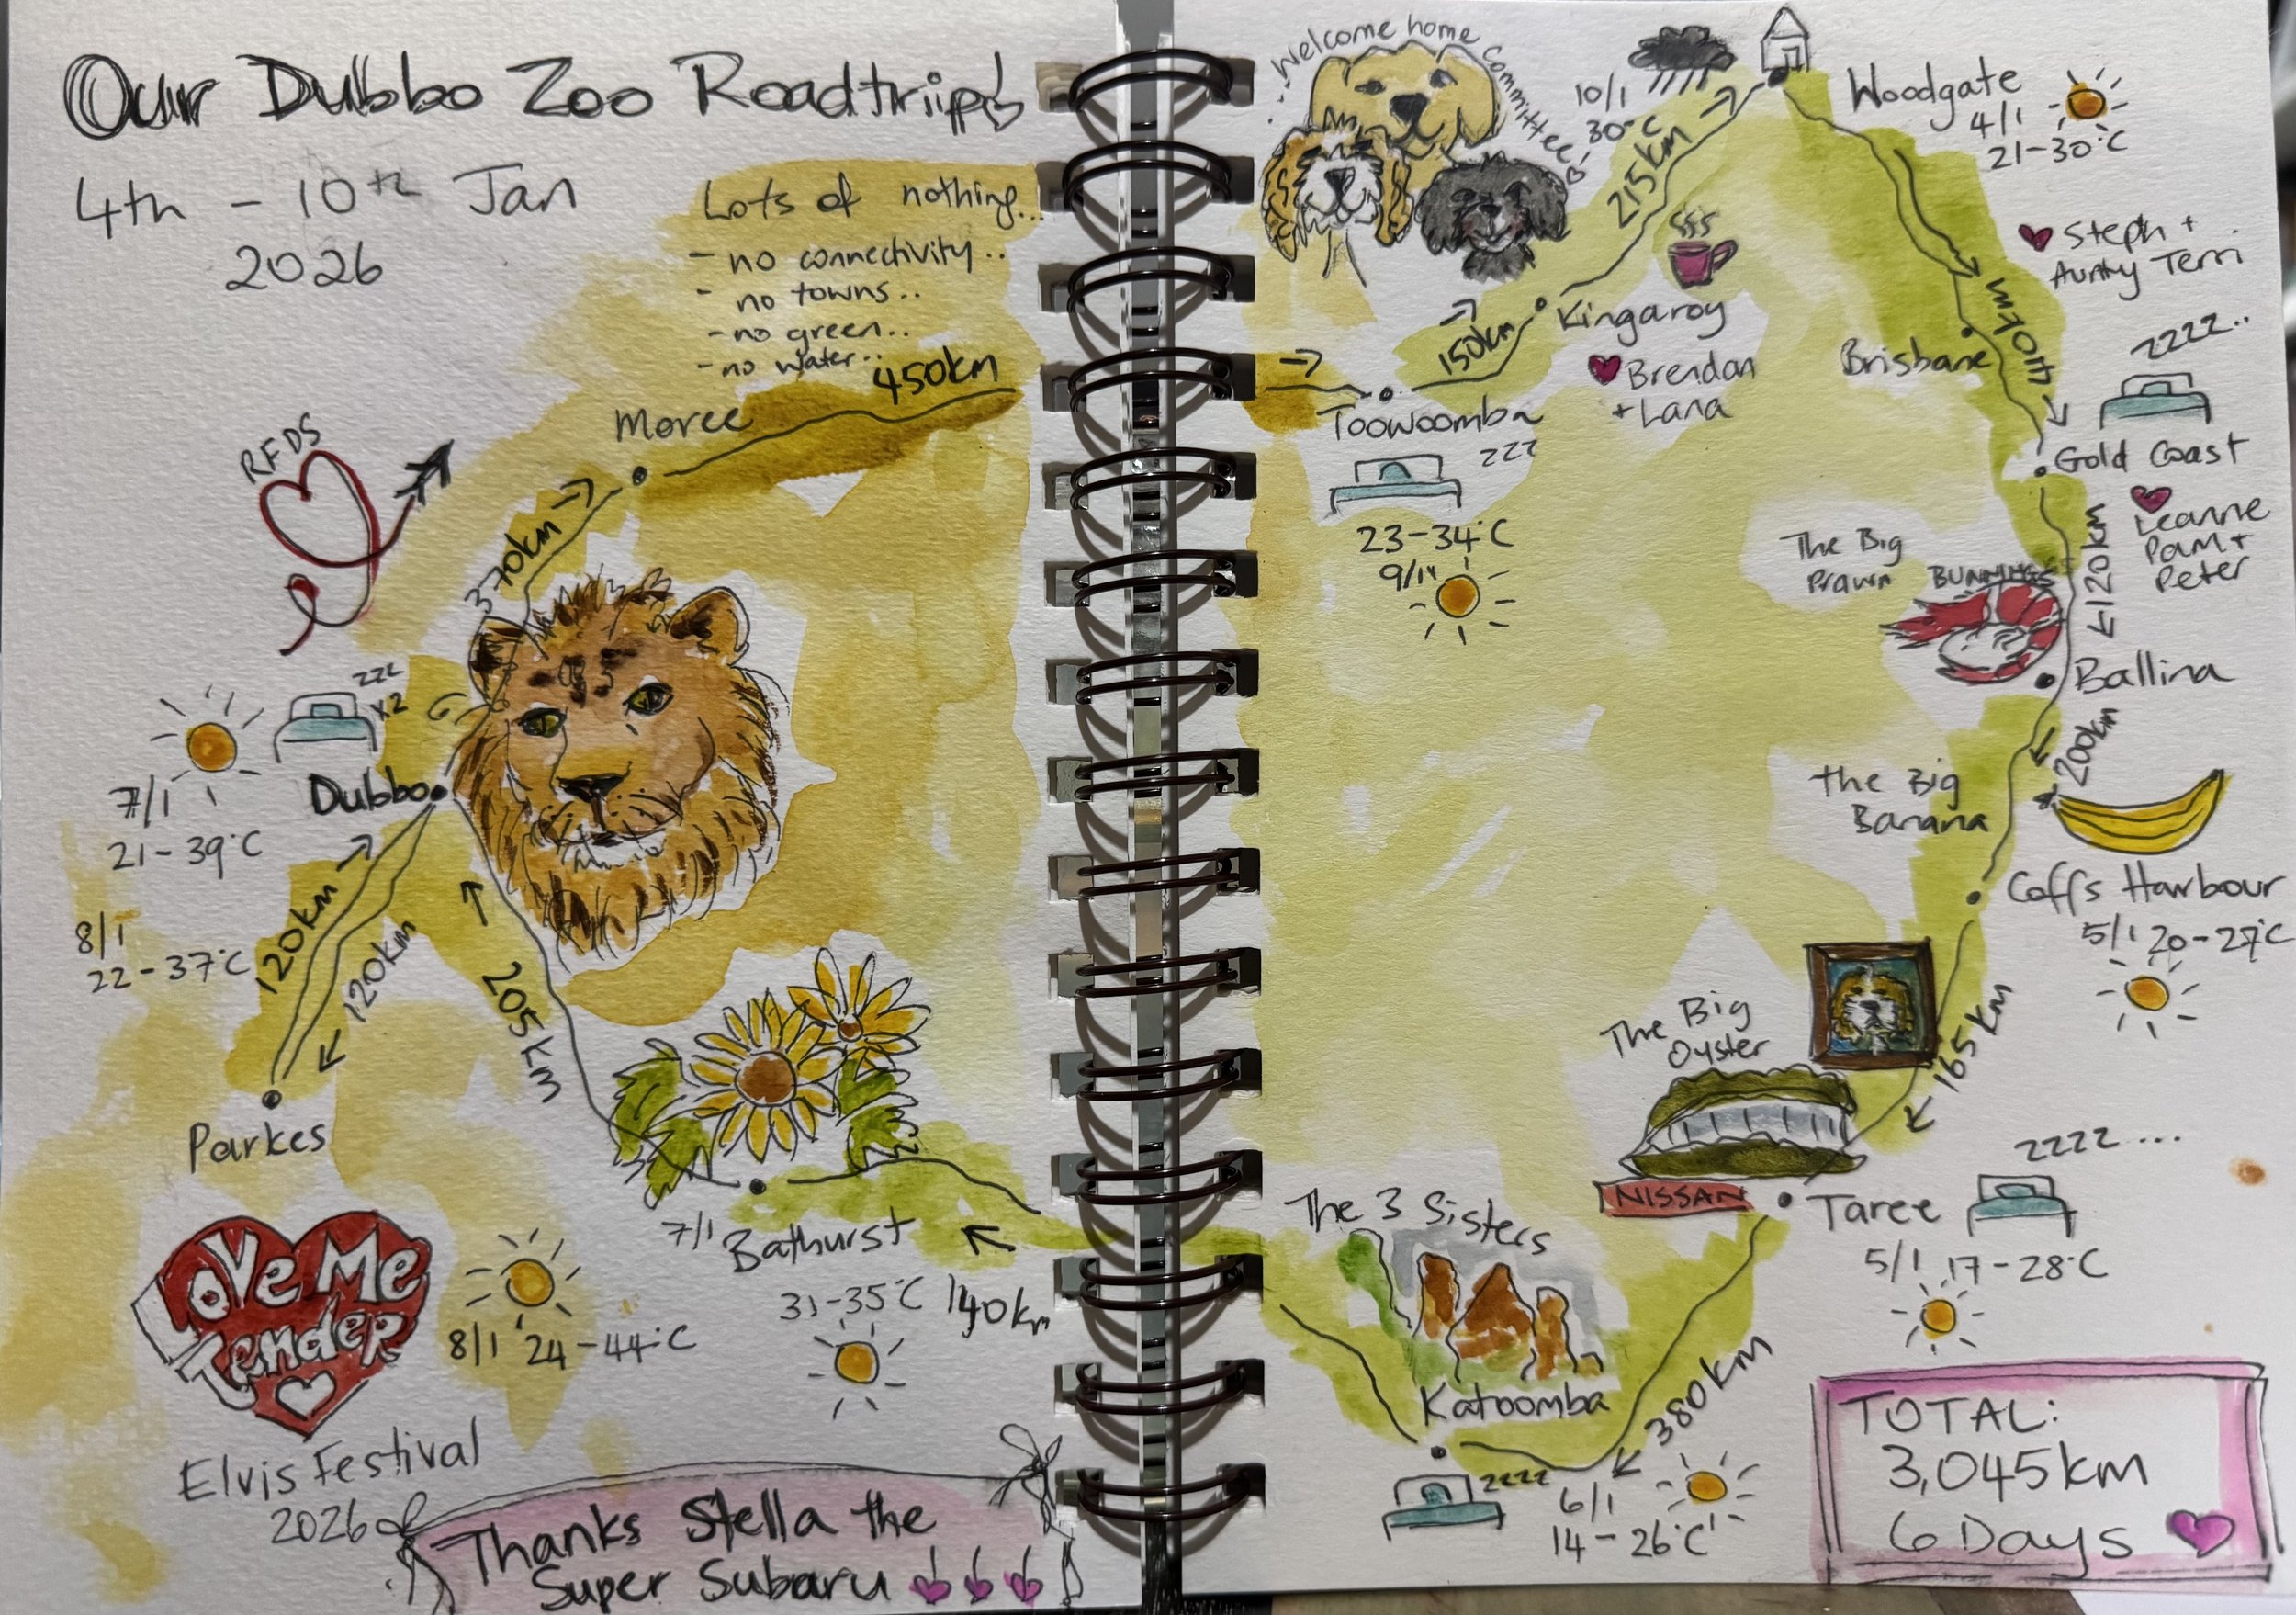 Our Dubbo Zoo Roadtrip
4th - 10th Jan
2026
Lots of nothing...
- no connectivity..
- no towns..
- no green..
- no water..
450km
Moree
RFDS
370km
zzz
x2
Dubbo
7/1
21-39°C
8/1
22-37°C
120km
120km
205km
Parkes
Love Me
Tender
Elvis Festival
2026
8/1 24-44°C
7/1 Bathurst
31-35°C
140km
Thanks Stella the
Super Subaru
Welcome home committee
10/1
30°C
215km
Woodgate
4/1
21-30°C
Steph +
Aunty Terri
Kingaroy
Brendan
+ Lana
150km
Toowoomba
zzz
23-34°C
Brisbane
440km
zzzz..
Gold Coast
Leanne
Pam +
Peter
120km
The Big
Prawn
BUNNINGS
Ballina
200km
The Big
Banana
Coffs Harbour
5/1 20-27°C
165km
The Big
Oyster
NISSAN
Taree
zzzz...
5/1 17-28°C
380km
The 3 Sisters
Katoomba
zzzz
6/1
14-26°C
TOTAL:
3,045km
6 Days